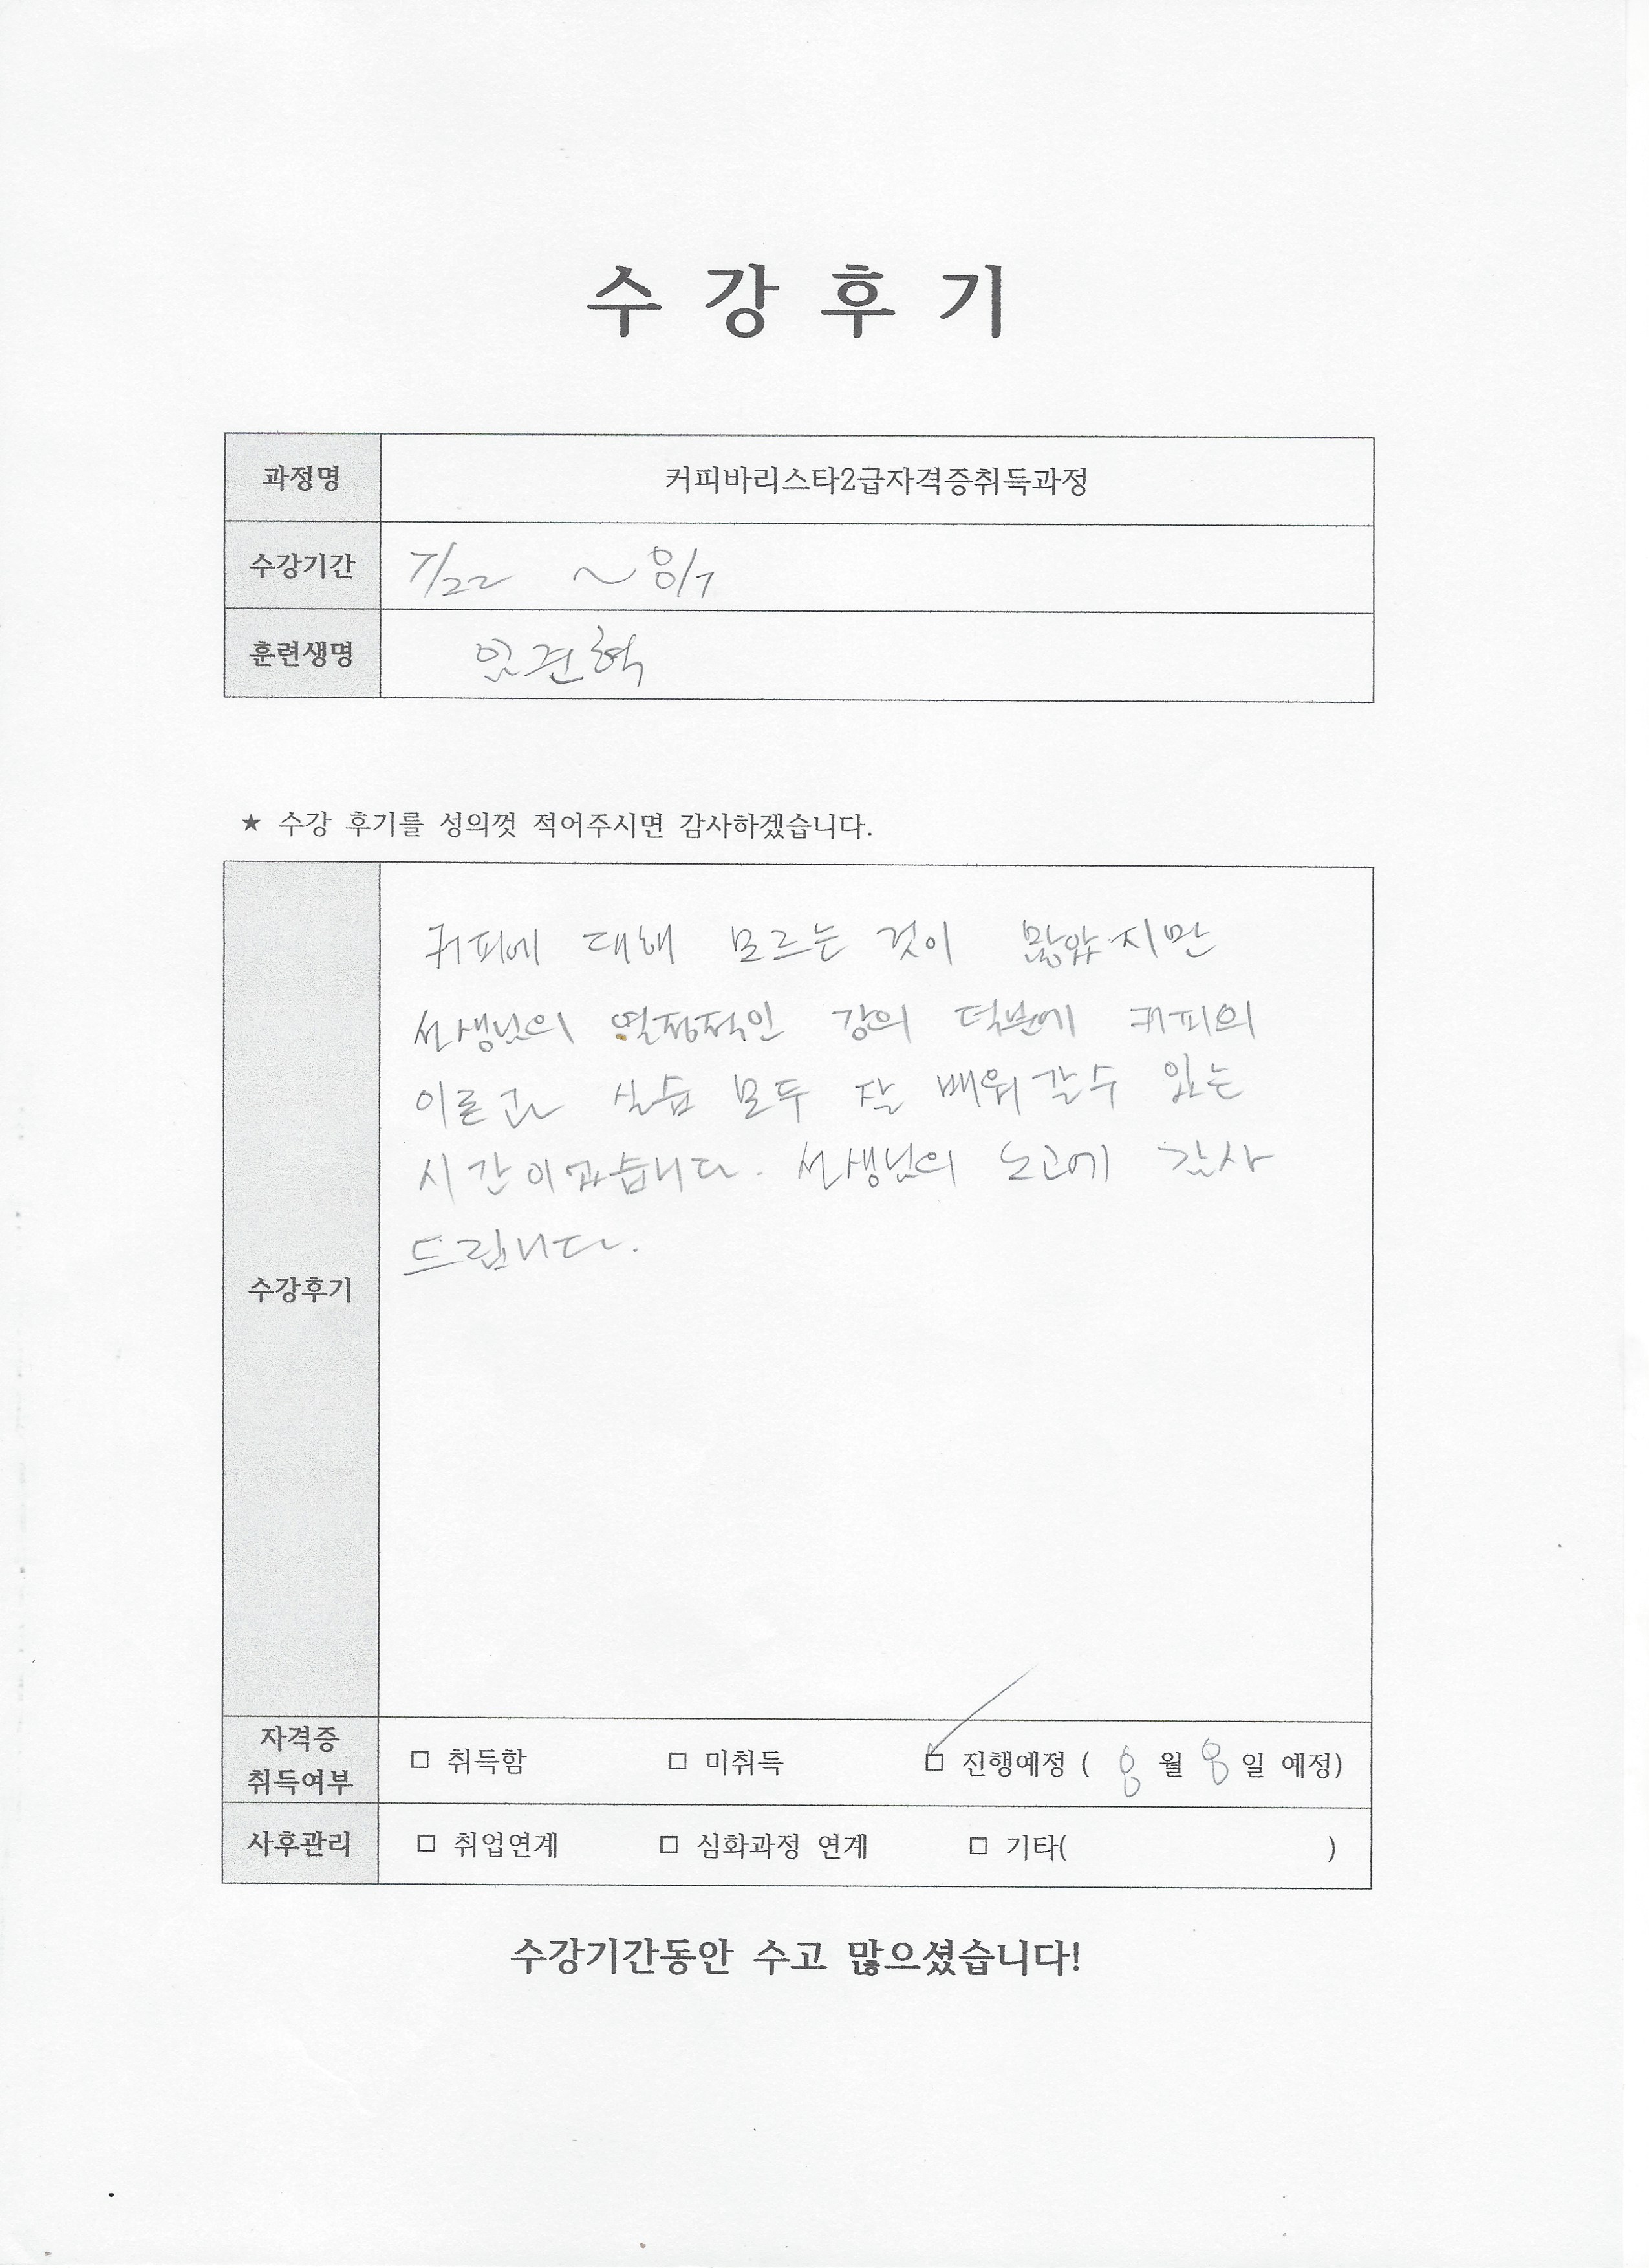 수 강 후 기
과정명 커피바리스타2급자격증취득과정
수강기간 7/22 ~ 8/7
훈련생명 임건혁
★ 수강 후기를 성의껏 적어주시면 감사하겠습니다.
커피에 대해 모르는 것이 많았지만
선생님의 열정적인 강의 덕분에 커피의
이론과 실습 모두 잘 배워갈수 있는
시간이었습니다. 선생님의 노고에 감사
드립니다.
수강후기
자격증
취득여부 □ 취득함 □ 미취득 □ 진행예정 ( 8 월 8 일 예정)
사후관리 □ 취업연계 □ 심화과정 연계 □ 기타( )
수강기간동안 수고 많으셨습니다!